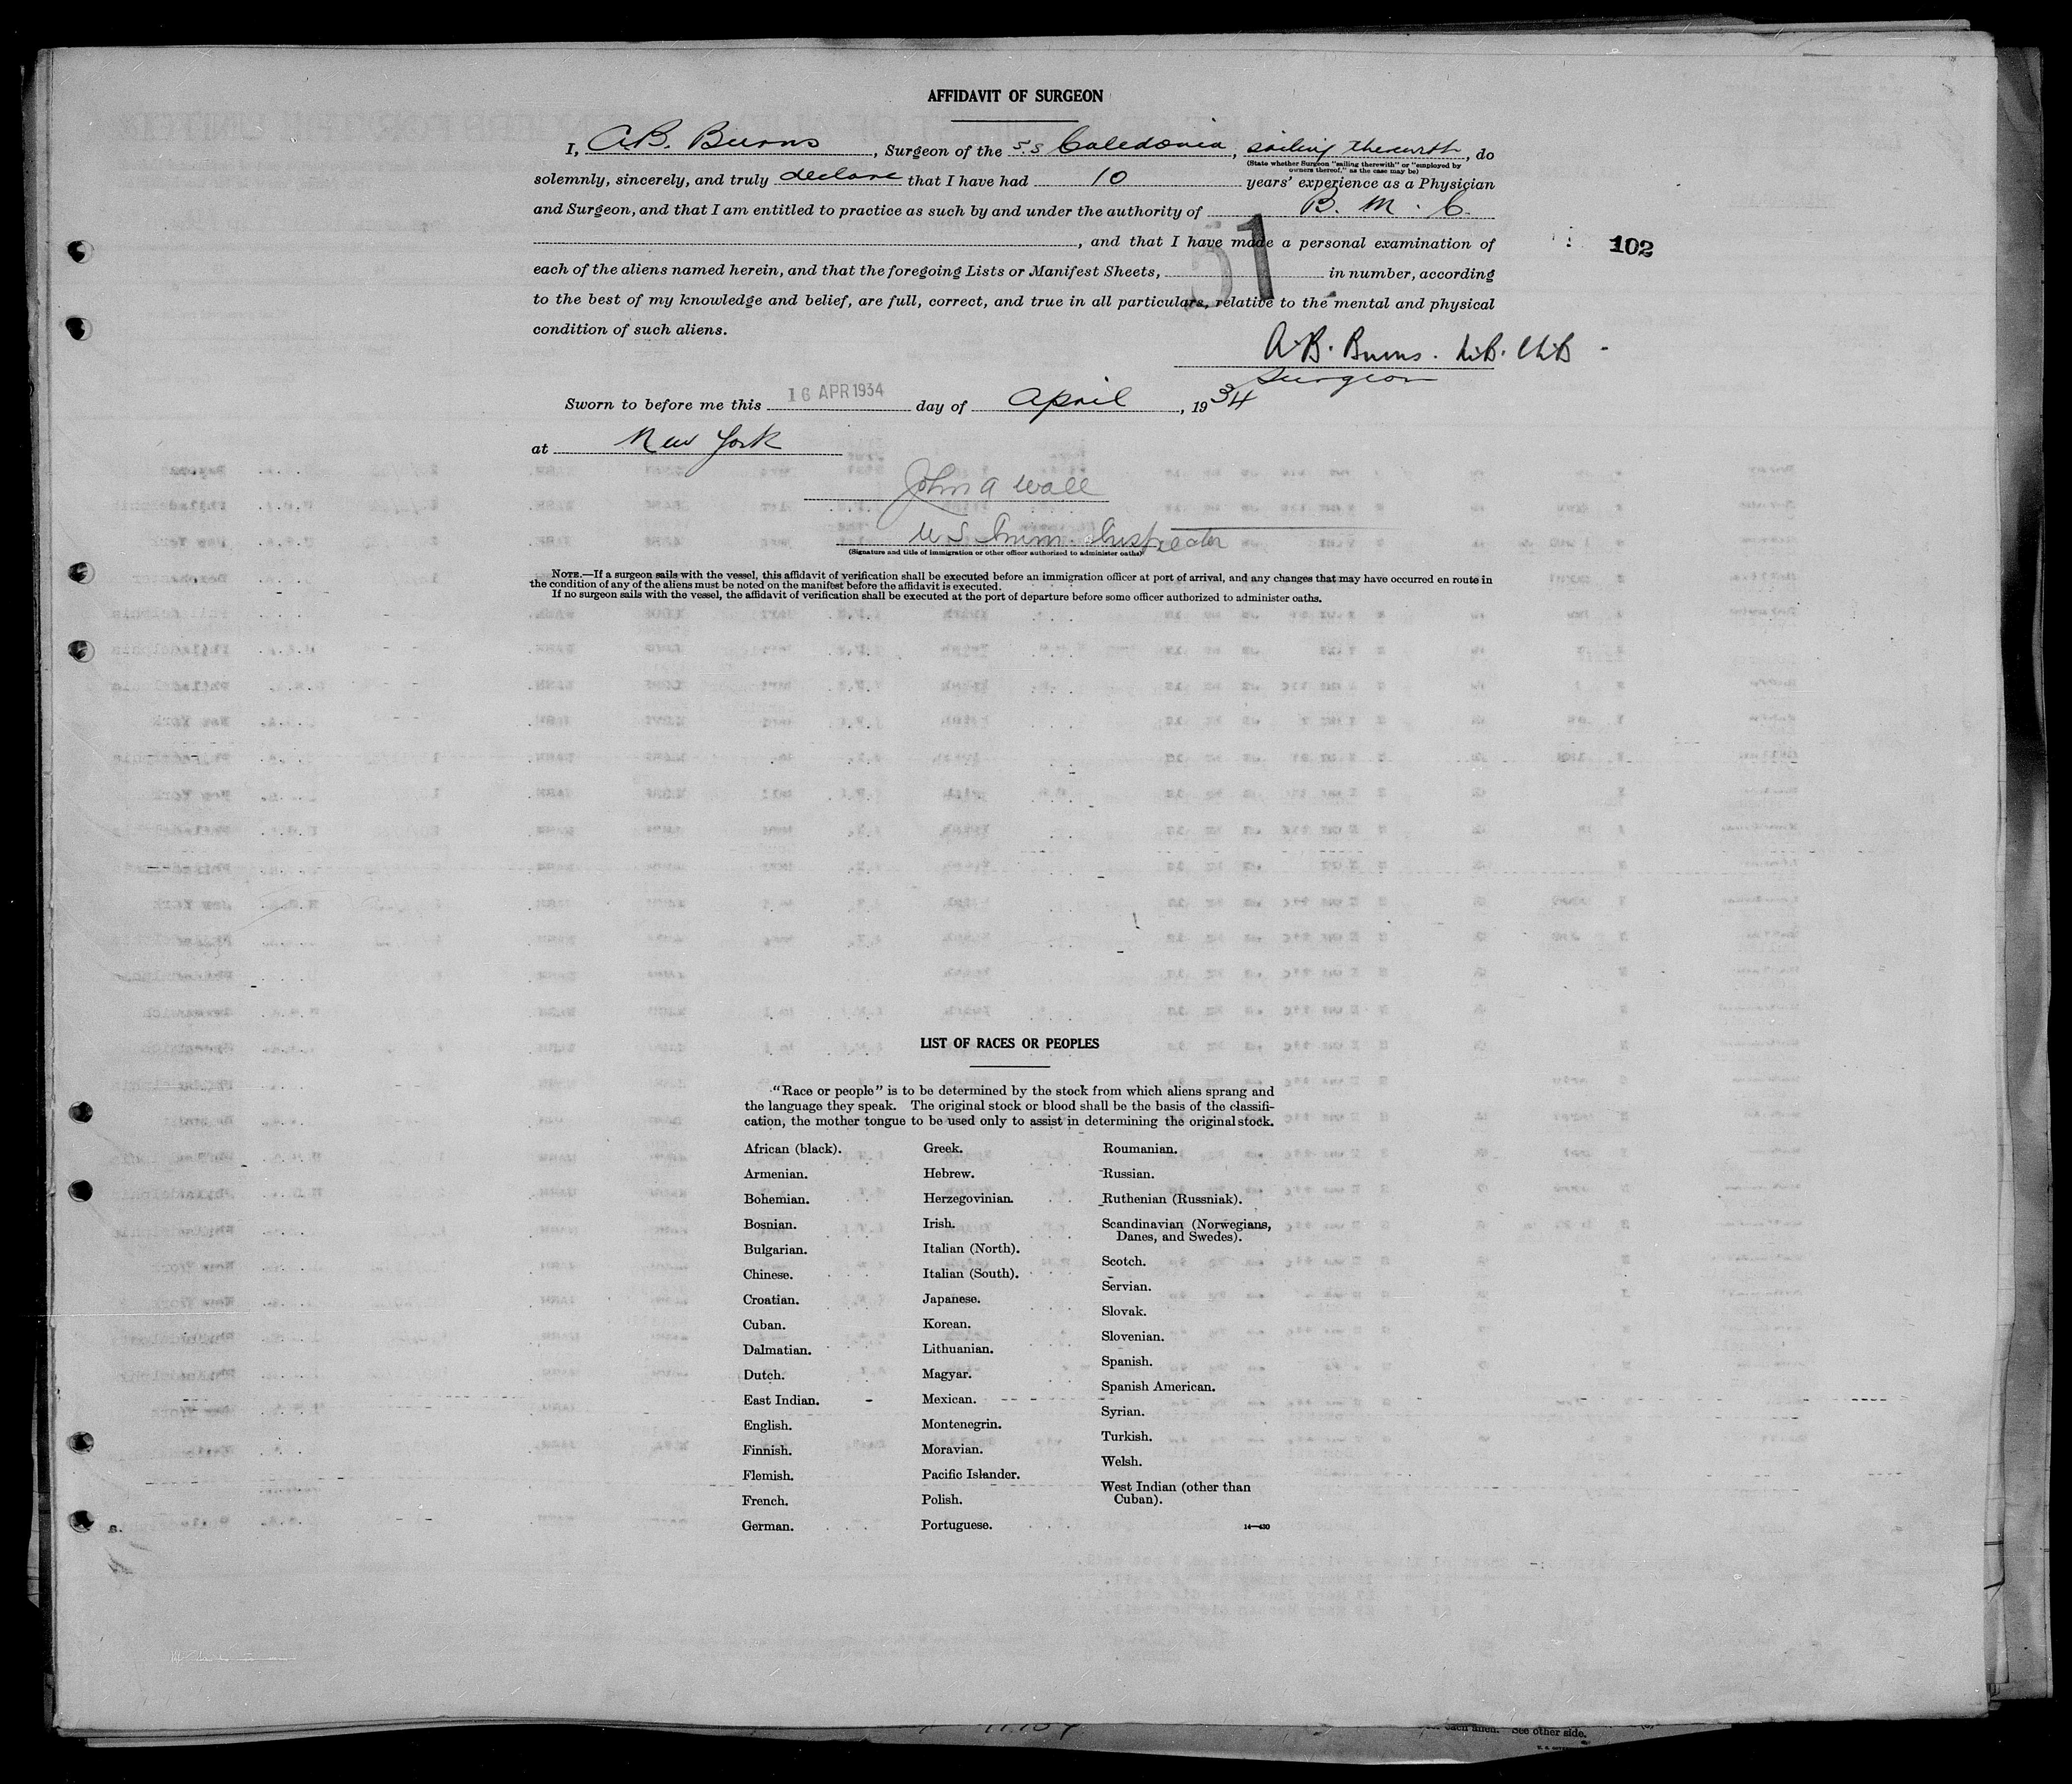 AFFIDAVIT OF SURGEON
I, A.B. Burns, Surgeon of the S.S Caledonia, sailing therewith, do
(State whether Surgeon "sailing therewith" or "employed by
owners thereof," as the case may be)
solemnly, sincerely, and truly declare that I have had 10 years' experience as a Physician
and Surgeon, and that I am entitled to practice as such by and under the authority of B. M. C.
, and that I have made a personal examination of
102
each of the aliens named herein, and that the foregoing Lists or Manifest Sheets, 51 in number, according
to the best of my knowledge and belief, are full, correct, and true in all particulars, relative to the mental and physical
condition of such aliens.
A.B. Burns.
Surgeon
Sworn to before me this 16 APR 1934 day of April, 1934
at New York
John A Wall
U S Imm. Inspector
(Signature and title of immigration or other officer authorized to administer oaths)
NOTE.—If a surgeon sails with the vessel, this affidavit of verification shall be executed before an immigration officer at port of arrival, and any changes that may have occurred en route in
the condition of any of the aliens must be noted on the manifest before the affidavit is executed.
If no surgeon sails with the vessel, the affidavit of verification shall be executed at the port of departure before some officer authorized to administer oaths.
LIST OF RACES OR PEOPLES
"Race or people" is to be determined by the stock from which aliens sprang and
the language they speak. The original stock or blood shall be the basis of the classifi-
cation, the mother tongue to be used only to assist in determining the original stock.
African (black).
Armenian.
Bohemian.
Bosnian.
Bulgarian.
Chinese.
Croatian.
Cuban.
Dalmatian.
Dutch.
East Indian.
English.
Finnish.
Flemish.
French.
German.
Greek.
Hebrew.
Herzegovinian.
Irish.
Italian (North).
Italian (South).
Japanese.
Korean.
Lithuanian.
Magyar.
Mexican.
Montenegrin.
Moravian.
Pacific Islander.
Polish.
Portuguese.
Roumanian.
Russian.
Ruthenian (Russniak).
Scandinavian (Norwegians,
Danes, and Swedes).
Scotch.
Servian.
Slovak.
Slovenian.
Spanish.
Spanish American.
Syrian.
Turkish.
Welsh.
West Indian (other than
Cuban).
14—430
See other side.